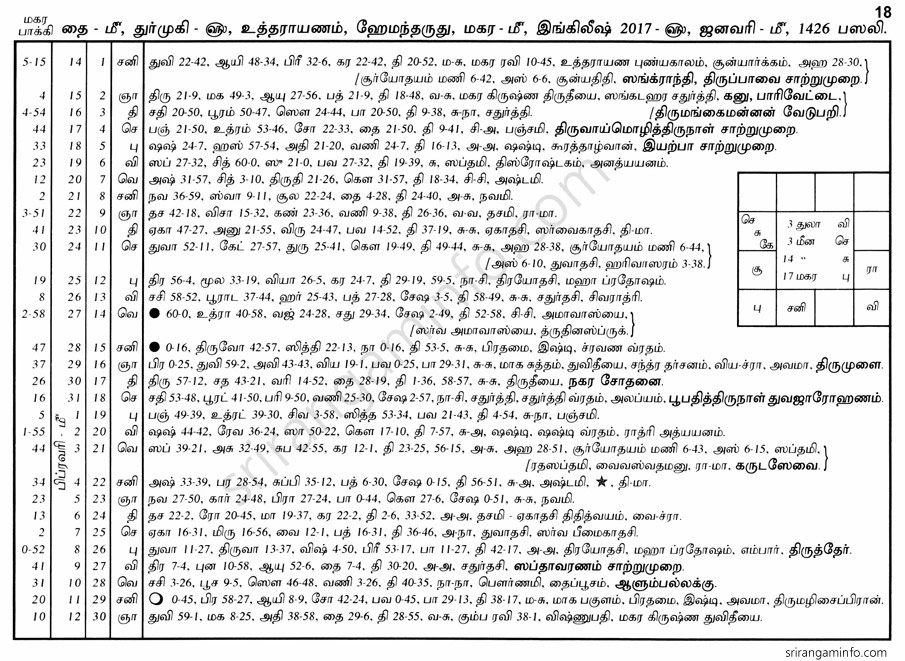 18
மகர பாக்கி தை - மீ, துர்முகி - ௵, உத்தராயணம், ஹேமந்தருது, மகர - மீ, இங்கிலீஷ் 2017 - ௵, ஜனவரி - மீ, 1426 பஸலி.
5-15 14 1 சனி துவி 22-42, ஆயி 48-34, பிரீ 32-6, கர 22-42, தி 20-52, ம-சு, மகர ரவி 10-45, உத்தராயண புண்யகாலம், சூன்யார்க்கம், அஹ 28-30,
சூர்யோதயம் மணி 6-42, அஸ் 6-6, சூன்யதிதி, ஸங்க்ராந்தி, திருப்பாவை சாற்றுமுறை.
4 15 2 ஞா திரு 21-9, மக 49-3, ஆயு 27-56, பத் 21-9, தி 18-48, வ-சு, மகர கிருஷ்ண திருதீயை, ஸங்கடஹர சதுர்த்தி, கனு, பாரிவேட்டை,
4-54 16 3 தி சதி 20-50, பூரம் 50-47, ஸௌ 24-44, பா 20-50, தி 9-38, சு-நா, சதுர்த்தி. திருமங்கைமன்னன் வேடுபறி.
44 17 4 செ பஞ் 21-50, உத்ரம் 53-46, சோ 22-33, தை 21-50, தி 9-41, சி-அ, பஞ்சமி, திருவாய்மொழித்திருநாள் சாற்றுமுறை.
33 18 5 பு ஷஷ் 24-7, ஹஸ் 57-54, அதி 21-20, வணி 24-7, தி 16-13, அ-அ, ஷஷ்டி, கூரத்தாழ்வான், இயற்பா சாற்றுமுறை.
23 19 6 வி ஸப் 27-32, சித் 60-0, ஸு 21-0, பவ 27-32, தி 19-39, சு, ஸப்தமி, திஸ்ரோஷ்டகம், அனத்யயனம்.
12 20 7 வெ அஷ் 31-57, சித் 3-10, திருதி 21-26, கௌ 31-57, தி 18-34, சி-சி, அஷ்டமி.
2 21 8 சனி நவ 36-59, ஸ்வா 9-11, சூல 22-24, தை 4-28, தி 24-40, அ-சு, நவமி.
3-51 22 9 ஞா தச 42-18, விசா 15-32, கண் 23-36, வணி 9-38, தி 26-36, வ-வ, தசமி, ரா-மா.
41 23 10 தி ஏகா 47-27, அனு 21-55, விரு 24-47, பவ 14-52, தி 37-19, சு-சு, ஏகாதசி, ஸர்வைகாதசி, தி-மா.
30 24 11 செ துவா 52-11, கேட் 27-57, துரு 25-41, கௌ 19-49, தி 49-44, சு-சு, அஹ 28-38, சூர்யோதயம் மணி 6-44,
அஸ் 6-10, துவாதசி, ஹரிவாஸரம் 3-38.
19 25 12 பு திர 56-4, மூல 33-19, வியா 26-5, கர 24-7, தி 29-19, 59-5, நா-சி, திரயோதசி, மஹா ப்ரதோஷம்.
8 26 13 வி சசி 58-52, பூராட 37-44, ஹர் 25-43, பத் 27-28, சேஷ 3-5, தி 58-49, சு-சு, சதுர்தசி, சிவராத்ரி.
2-58 27 14 வெ ● 60-0, உத்ரா 40-58, வஜ் 24-28, சது 29-34, சேஷ 2-49, தி 52-58, சி-சி, அமாவாஸ்யை,
ஸர்வ அமாவாஸ்யை, த்ருதினஸ்ப்ருக்.
47 28 15 சனி ● 0-16, திருவோ 42-57, ஸித்தி 22-13, நா 0-16, தி 53-5, சு-சு, பிரதமை, இஷ்டி, ச்ரவண வ்ரதம்.
37 29 16 ஞா பிர 0-25, துவி 59-2, அவி 43-43, விய 19-1, பவ 0-25, பா 29-31, சு-சு, மாக சுத்தம், துவிதீயை, சந்த்ர தர்சனம், விய-ச்ரா, அவமா, திருமுளை.
26 30 17 தி திரு 57-12, சத 43-21, வரி 14-52, தை 28-19, தி 1-36, 58-57, சு-சு, திருதீயை, நகர சோதனை.
16 31 18 செ சதி 53-48, பூரட் 41-50, பரி 9-50, வணி 25-30, சேஷ 2-57, நா-சி, சதுர்த்தி, சதுர்த்தி வ்ரதம், அலப்யம், பூபதித்திருநாள் துவஜாரோஹணம்.
பிப்ரவரி - மீ
5 1 19 பு பஞ் 49-39, உத்ரட் 39-30, சிவ 3-58, ஸித்த 53-34, பவ 21-43, தி 4-54, சு-நா, பஞ்சமி.
1-55 2 20 வி ஷஷ் 44-42, ரேவ 36-24, ஸா 50-22, கௌ 17-10, தி 7-57, சு-அ, ஷஷ்டி, ஷஷ்டி வ்ரதம், ராத்ரி அத்யயனம்.
44 3 21 வெ ஸப் 39-21, அசு 32-49, சுப 42-55, கர 12-1, தி 23-25, 56-15, அ-சு, அஹ 28-51, சூர்யோதயம் மணி 6-43, அஸ் 6-15, ஸப்தமி,
ரதஸப்தமி, வைவஸ்வதமனு, ரா-மா, கருடஸேவை.
34 4 22 சனி அஷ் 33-39, பர 28-54, சுப்பி 35-12, பத் 6-30, சேஷ 0-15, தி 56-51, சு-அ, அஷ்டமி, ★, தி-மா.
23 5 23 ஞா நவ 27-50, கார் 24-48, பிரா 27-24, பா 0-44, கௌ 27-6, சேஷ 0-51, சு-சு, நவமி.
13 6 24 தி தச 22-2, ரோ 20-45, மா 19-37, கர 22-2, தி 2-6, 33-52, அ-அ, தசமி - ஏகாதசி திதித்வயம், வை-ச்ரா.
2 7 25 செ ஏகா 16-31, மிரு 16-56, வை 12-1, பத் 16-31, தி 36-46, அ-நா, துவாதசி, ஸர்வ பீமைகாதசி.
0-52 8 26 பு துவா 11-27, திருவா 13-37, விஷ் 4-50, பிரீ 53-17, பா 11-27, தி 42-17, அ-அ, திரயோதசி, மஹா ப்ரதோஷம், எம்பார், திருத்தேர்.
41 9 27 வி திர 7-4, புன 10-58, ஆயு 52-6, தை 7-4, தி 30-20, அ-அ, சதுர்தசி, ஸப்தாவரணம் சாற்றுமுறை.
31 10 28 வெ சசி 3-26, பூச 9-5, ஸௌ 46-48, வணி 3-26, தி 40-35, நா-நா, பௌர்ணமி, தைப்பூசம், ஆளும்பல்லக்கு.
20 11 29 சனி ○ 0-45, பிர 58-27, ஆயி 8-9, சோ 42-24, பவ 0-45, பா 29-13, தி 38-17, ம-சு, மாக பகுளம், பிரதமை, இஷ்டி, அவமா, திருமழிசைப்பிரான்.
10 12 30 ஞா துவி 59-1, மக 8-25, அதி 38-58, தை 29-6, தி 28-55, வ-சு, கும்ப ரவி 38-1, விஷ்ணுபதி, மகர கிருஷ்ண துவிதீயை.
செ சு கே
3 துலா வி
3 மீன செ
14 " சு
17 மகர பு
சூ
ரா
பு சனி வி
srirangaminfo.com
srirangaminfo.com